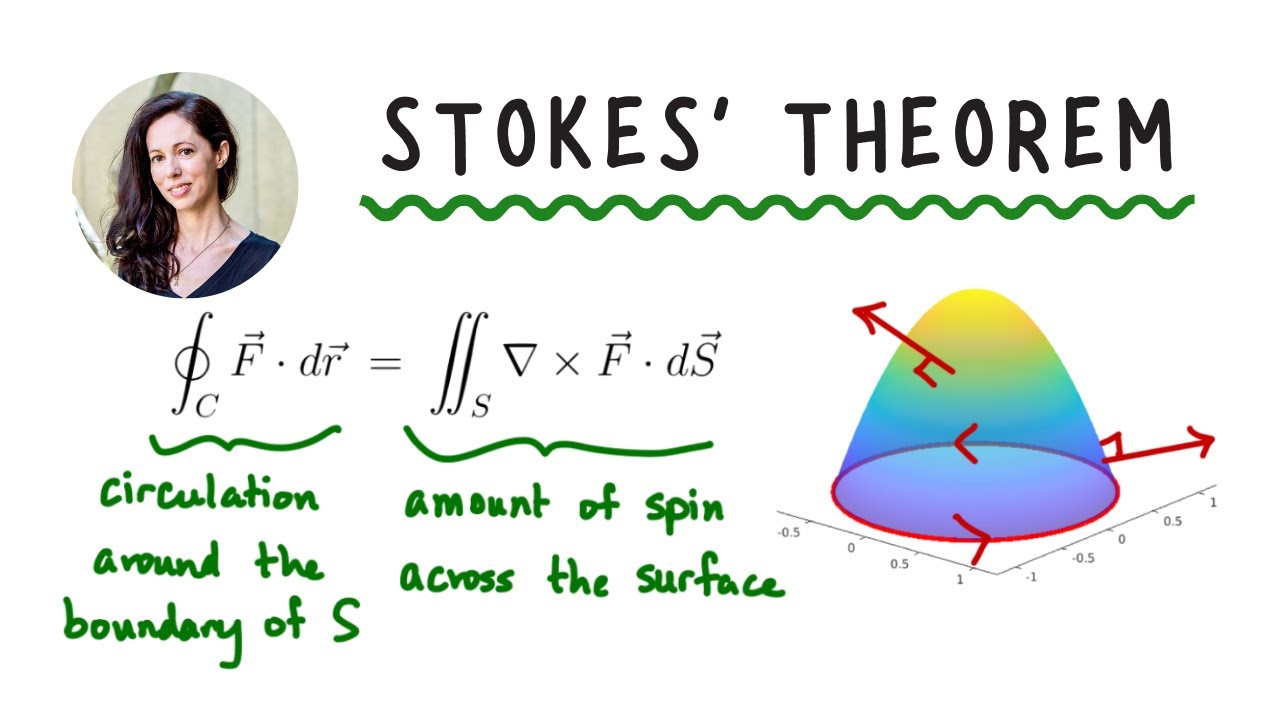 STOKES' THEOREM
∮_C F⃗ · dr⃗ = ∬_S ∇ × F⃗ · dS⃗
circulation
around the
boundary of S
amount of spin
across the surface
-0.5
0
0.5
1
-1
-0.5
0
0.5
1